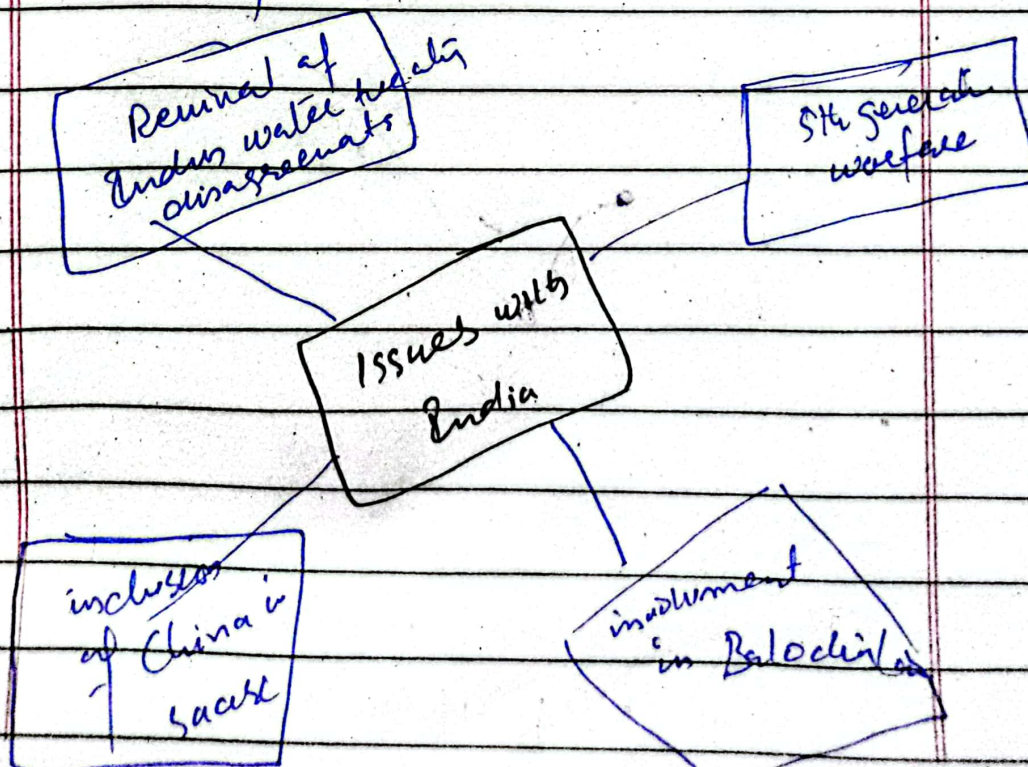 Revival of
Indus water treaty
disagreements
5th generation
warfare
Issues with
India
inclusion
of China in
saarc
involvment
in Balochistan